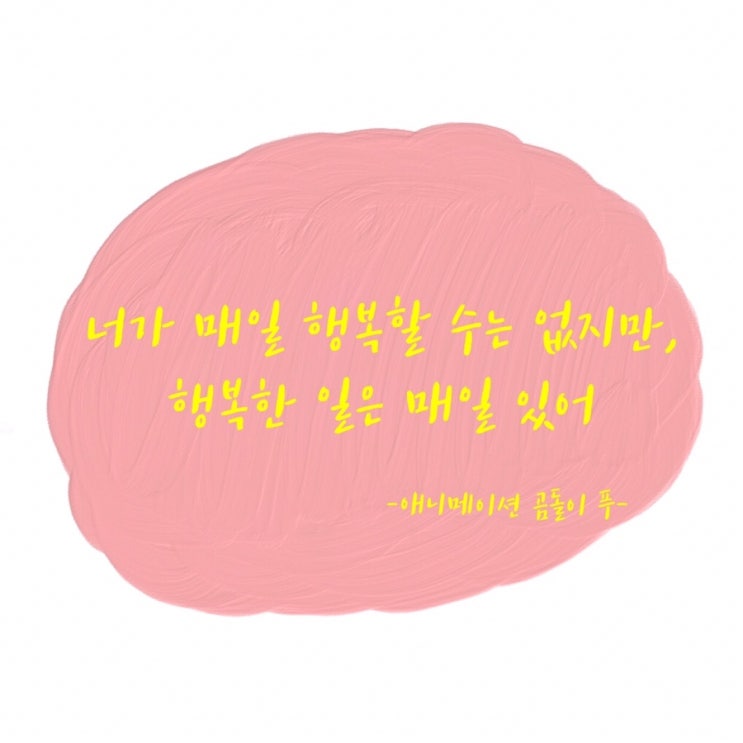 너가 매일 행복할 수는 없지만,
행복한 일은 매일 있어
-애니메이션 곰돌이 푸-